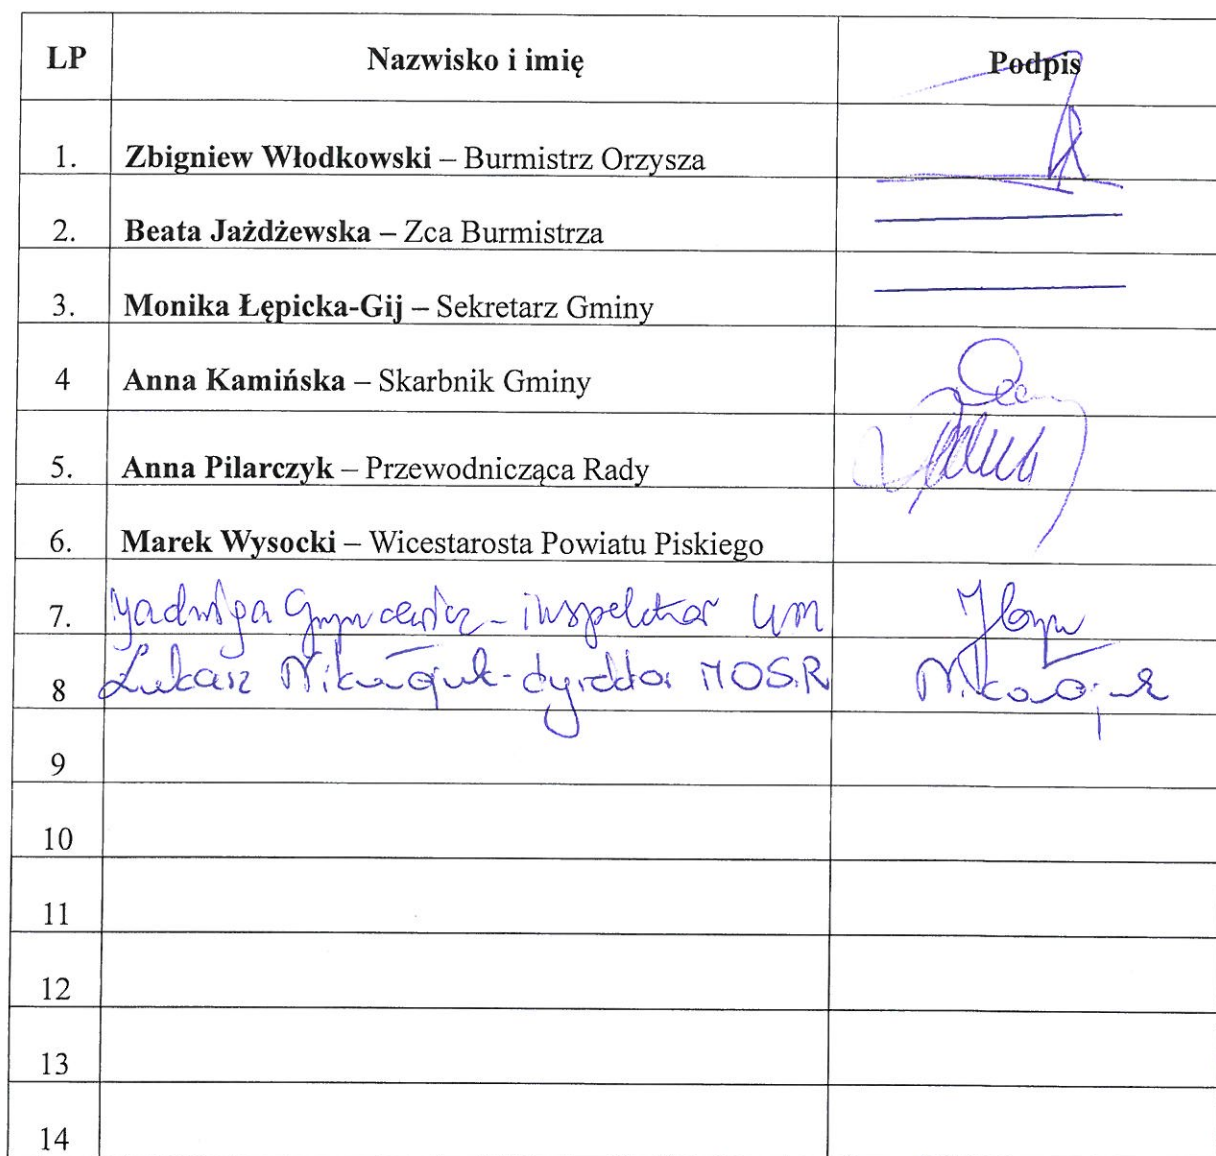 LP Nazwisko i imię Podpis
1. Zbigniew Włodkowski – Burmistrz Orzysza
2. Beata Jażdżewska – Zca Burmistrza
3. Monika Łępicka-Gij – Sekretarz Gminy
4 Anna Kamińska – Skarbnik Gminy
5. Anna Pilarczyk – Przewodnicząca Rady
6. Marek Wysocki – Wicestarosta Powiatu Piskiego
7. Jadwiga - inspektor UM
8 Łukasz Mikołajuk - dyrektor MOSiR Mikołajuk
9
10
11
12
13
14